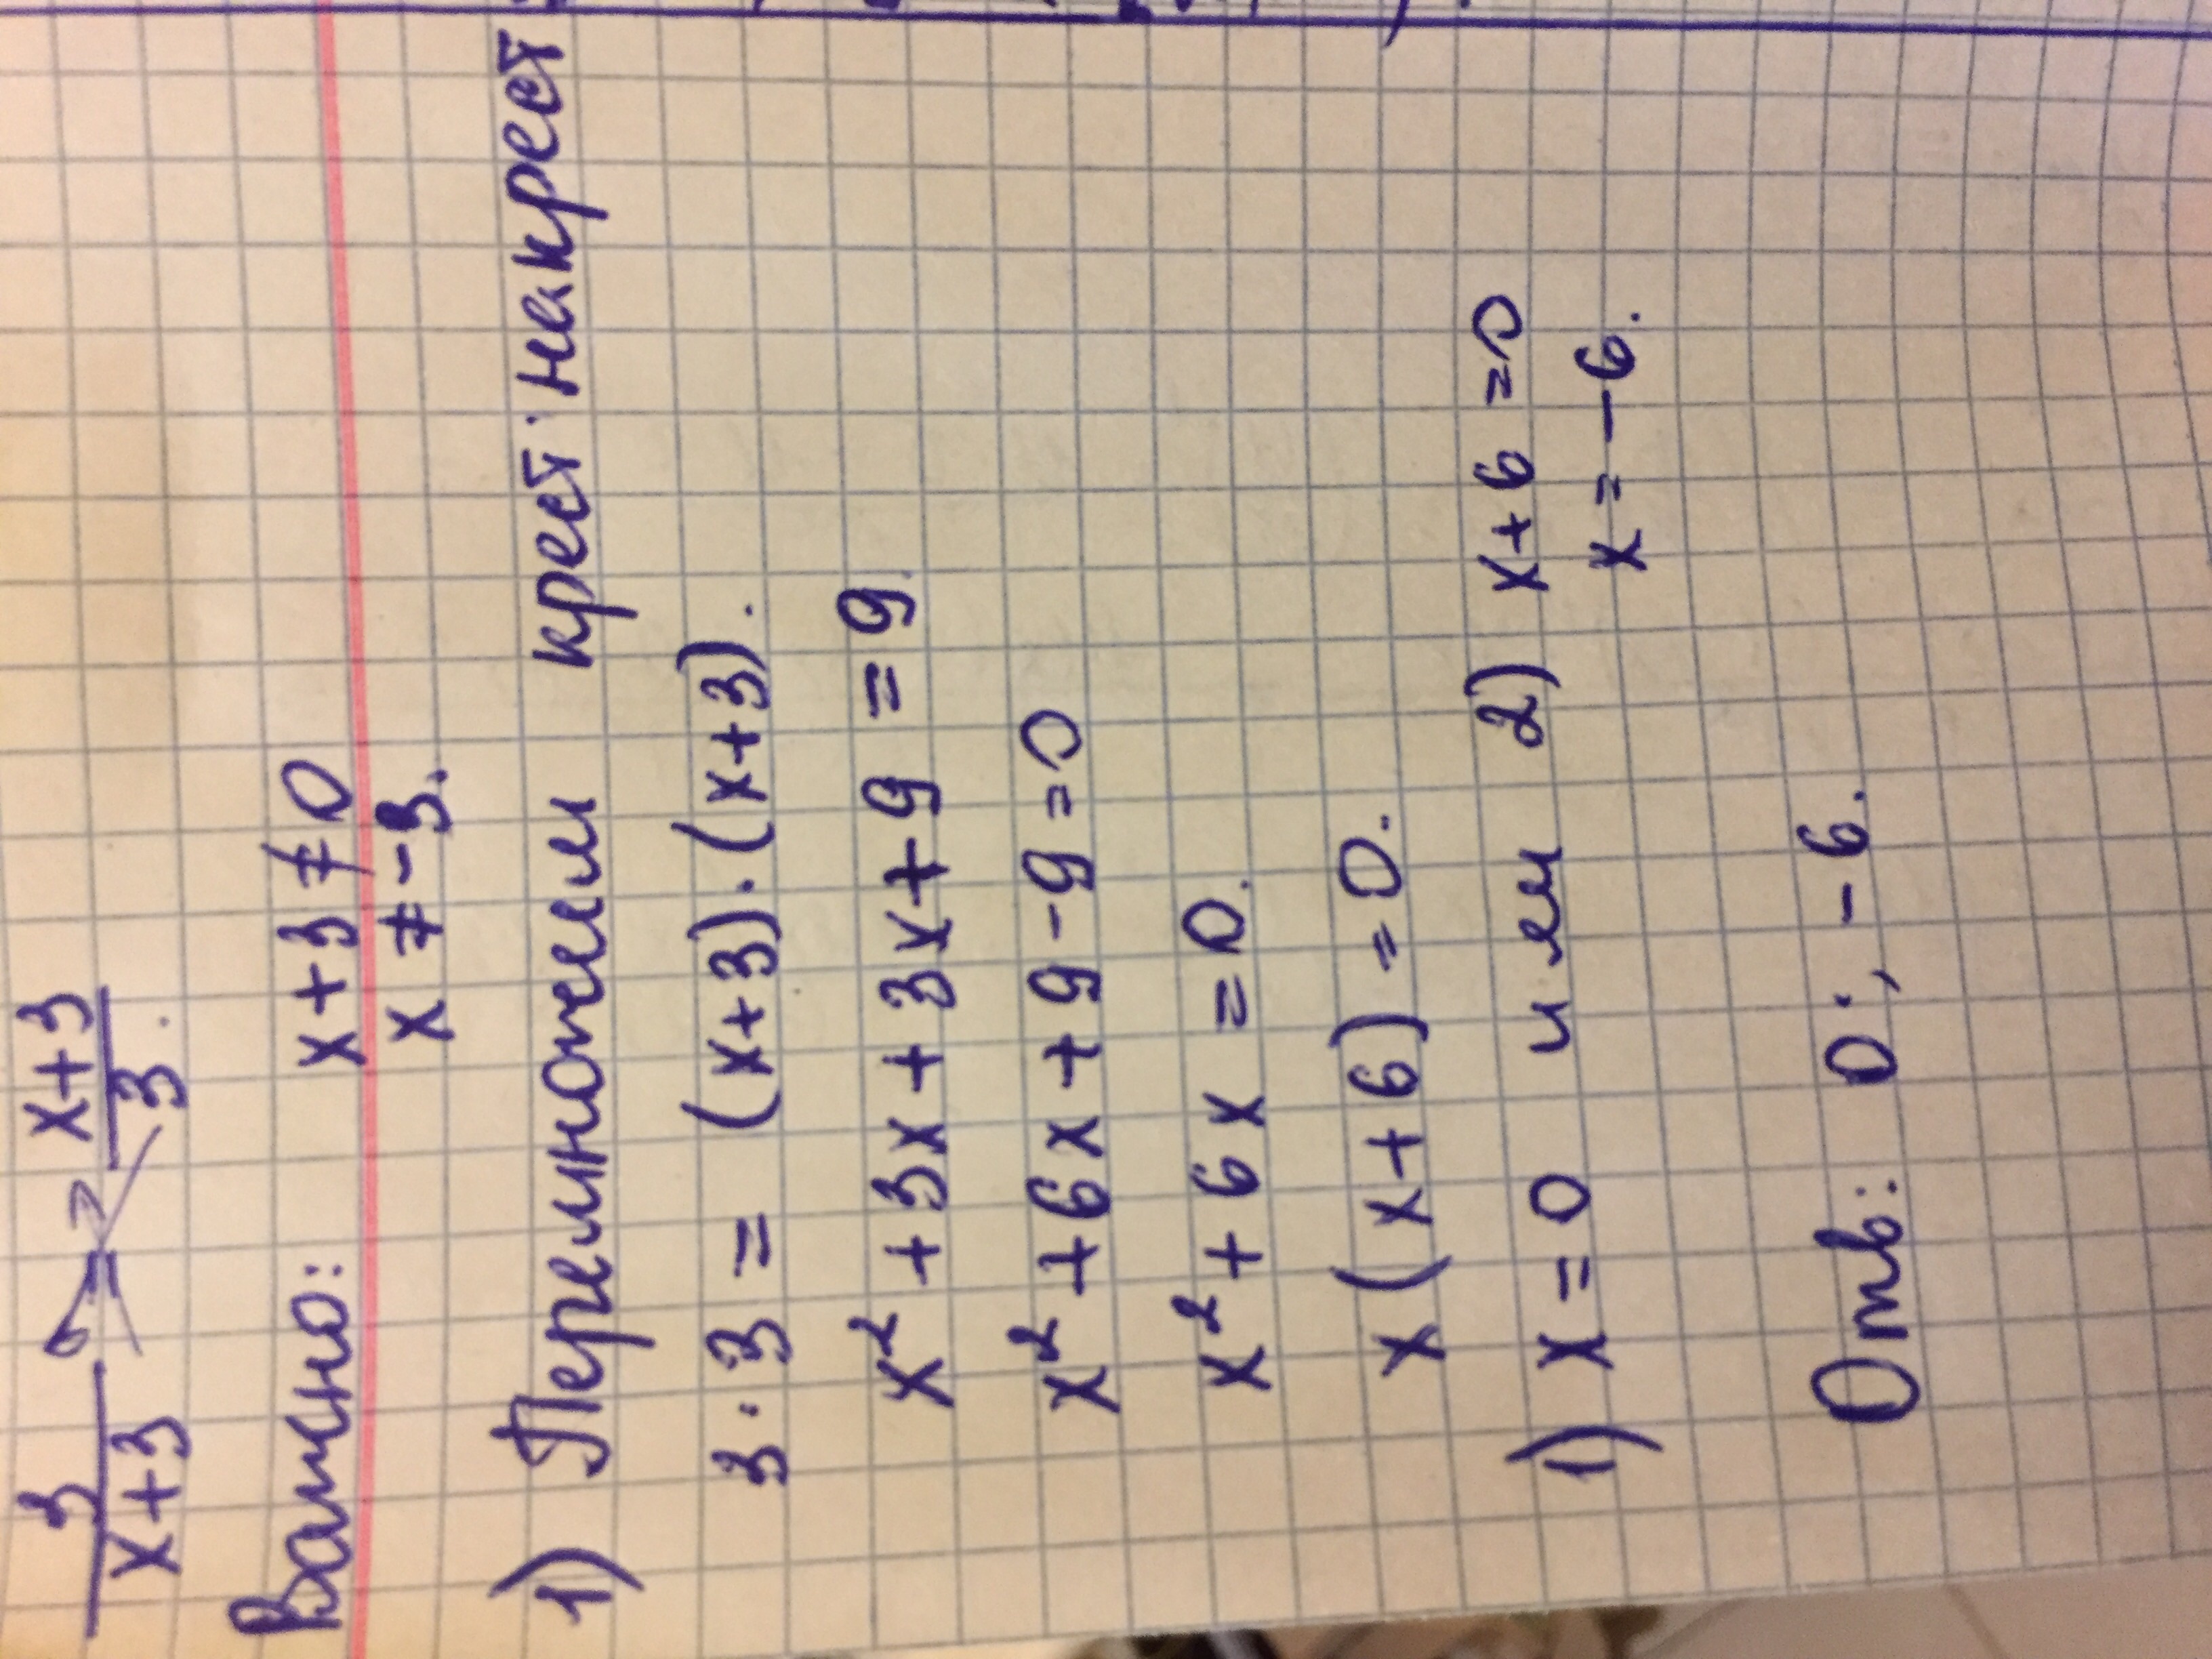 3/(x+3) = (x+3)/3.
Важно: x+3≠0
x ≠ -3.
1) Перемножим крест накрест
3·3 = (x+3)·(x+3).
x² + 3x + 3x + 9 = 9.
x² + 6x + 9 - 9 = 0
x² + 6x = 0.
x (x+6) = 0.
1) x = 0 или 2) x+6=0
x = -6.
Отв: 0; -6.